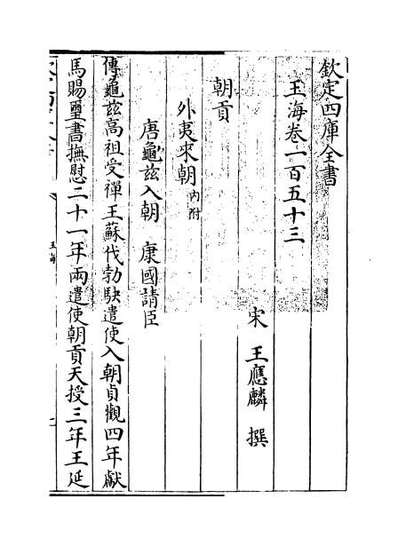 欽定四庫全書
玉海卷一百五十三
宋 王應麟 撰
朝貢
外夷來朝 內附
唐龜兹入朝 康國請臣
傳龜兹高祖受禪王蘇伐勃駃遣使入朝貞觀四年獻
馬賜璽書撫慰二十一年兩遣使朝貢天授三年王延
玉海